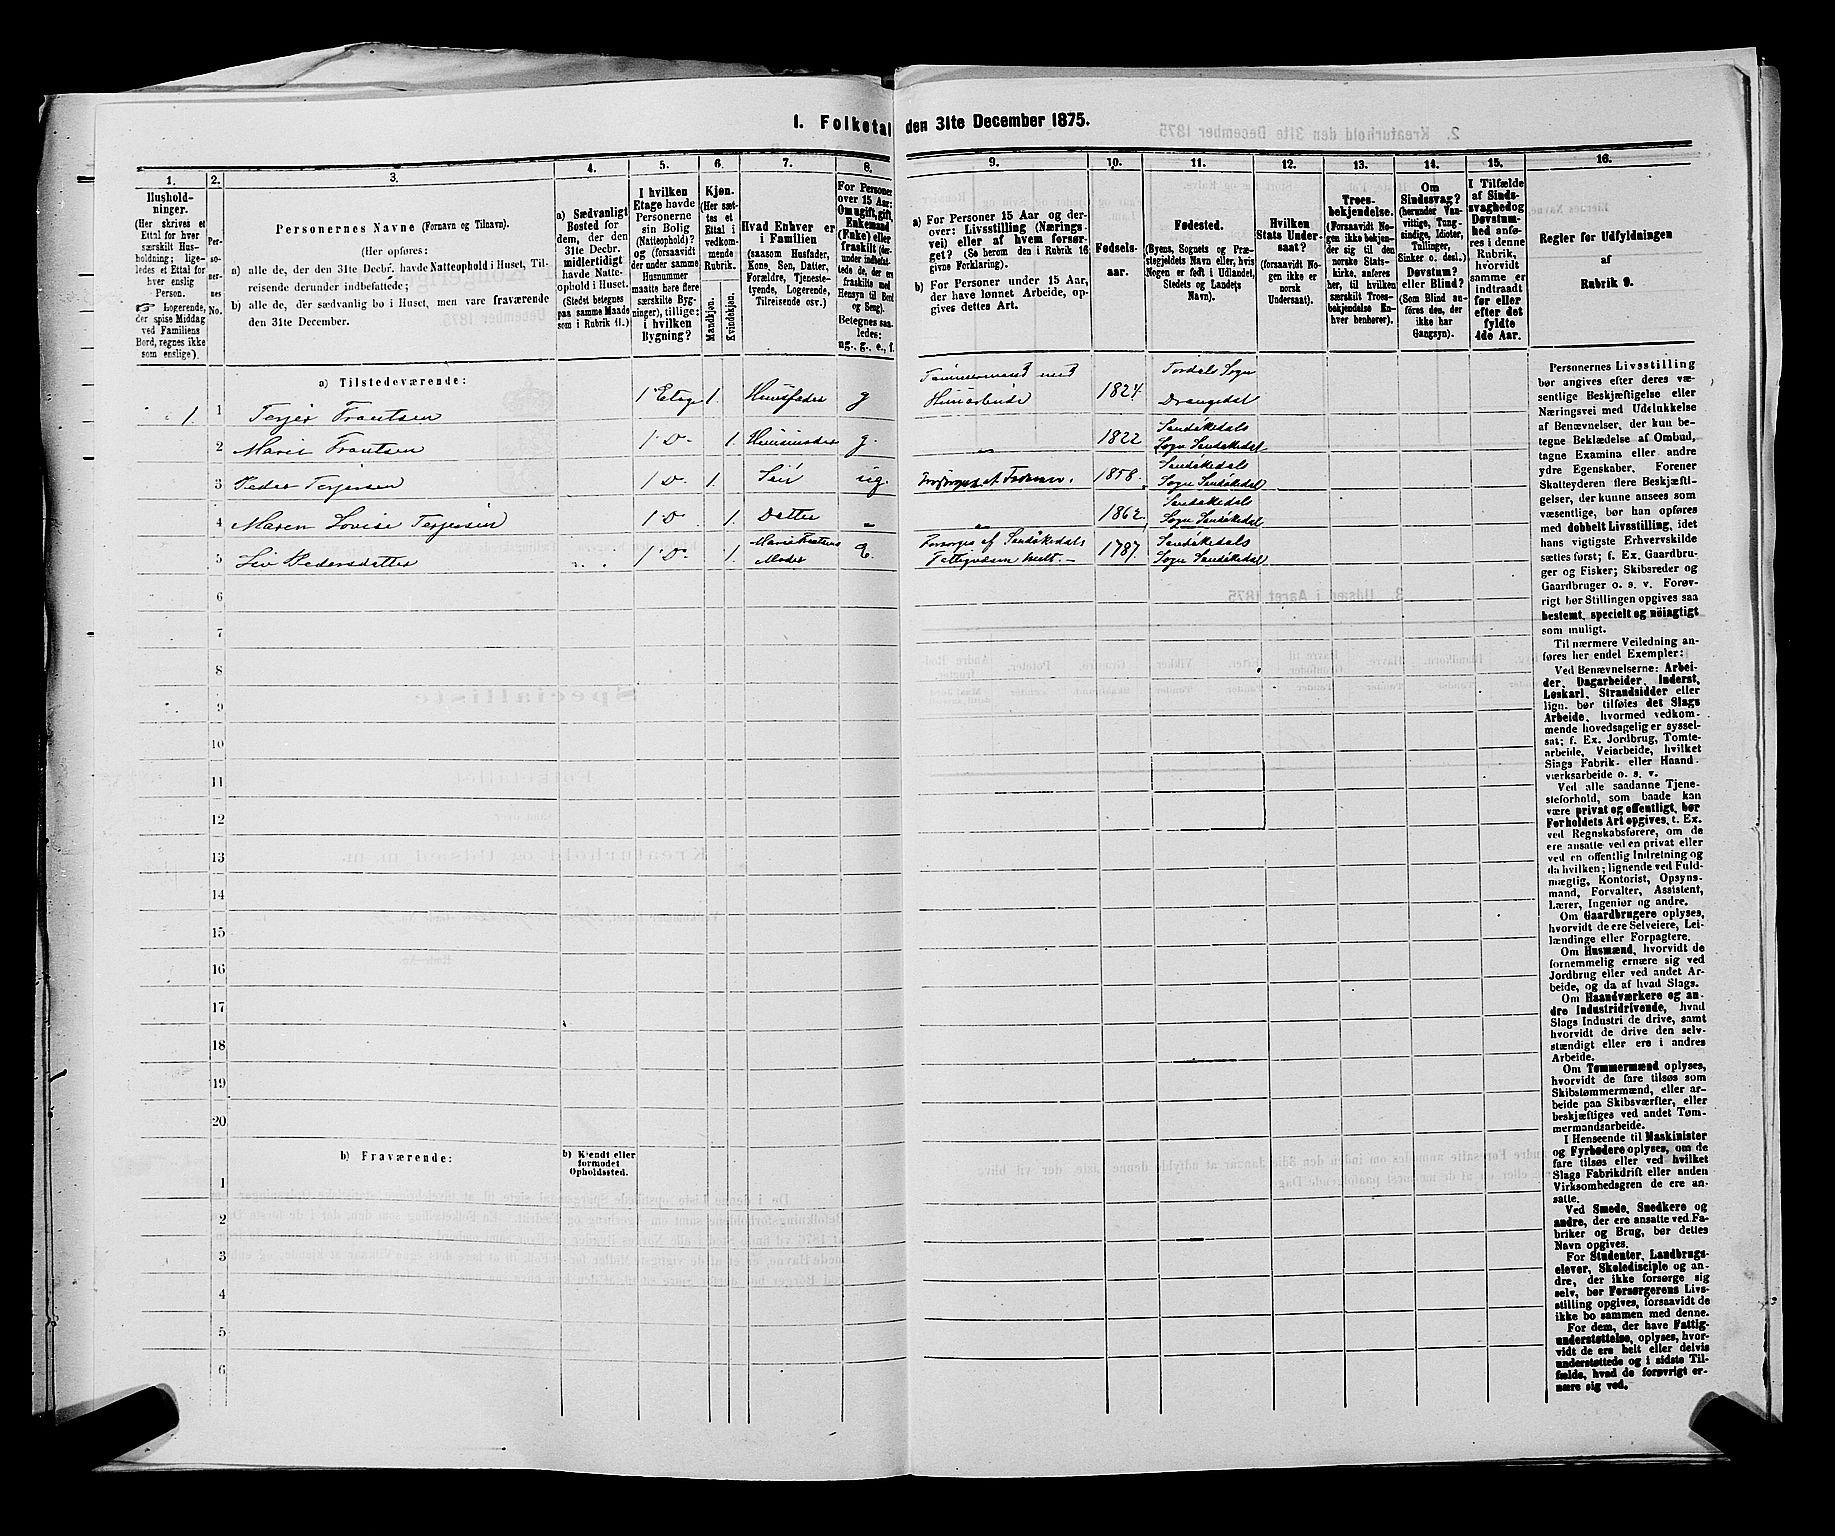 1. Folketal den 31te December 1875.
1. 2. 3. 4. 5. 6. 7. 8. 9. 10. 11. 12. 13. 14. 15. 16.
Hushold-
ninger.
(Her skrives et
Ettal for hver
særskilt Hus-
holdning; lige-
ledes et Ettal for
hver enslig
Person.
☞ Logerende,
der spise Middag
ved Familiens
Bord, regnes ikke
som enslige).
Per-
so-
ner-
nes
No.
Personernes Navne (Fornavn og Tilnavn).
(Her opføres:
a) alle de, der den 31te Decbr. havde Natteophold i Huset, Til-
reisende derunder indbefattede;
b) alle de, der sædvanlig bo i Huset, men vare fraværende
den 31te December.
a) Sædvanligt
Bosted for
dem, der den
31te Decbr.
midlertidigt
havde Natte-
ophold i Huset.
(Stedet betegnes
paa samme Maade
som i Rubrik 11.)
I hvilken
Etage havde
Personerne
sin Bolig
(Natteophold)?
og (forsaavidt
der under samme
Husnummer
maatte høre flere
særskilte Byg-
ninger), tillige:
i hvilken
Bygning?
Kjøn.
(Her sæt-
tes et
Ettal i
vedkom-
mende
Rubrik.
Mandkjøn.
Kvindekjøn.
Hvad Enhver er
i Familien
(saasom Husfader,
Kone, Søn, Datter,
Forældre, Tjeneste-
tyende, Logerende,
Tilreisende osv.)
For Personer
over 15 Aar:
Om ugift, gift,
Enkemand
(Enke) eller
fraskilt (der-
under indbefat-
tede de, der ere
fraskilte med
Hensyn til Bord
og Seng).
Betegnes saa-
ledes:
ug., g., e., f.
a) For Personer 15 Aar og der-
over: Livsstilling (Nærings-
vei) eller af hvem forsør-
get? (Se herom den i Rubrik 16
givne Forklaring).
b) For Personer under 15 Aar,
der have lønnet Arbeide, op-
gives dettes Art.
Fødsels-
aar.
Fødested.
(Byens, Sognets og Præ-
stegjeldets Navn eller, hvis
Nogen er født i Udlandet,
Stedets og Landets
Navn).
Hvilken
Stats Under-
saat?
(forsaavidt No-
gen ikke er
norsk
Undersaat).
Troes-
bekjendelse.
(Forsaavidt No-
gen ikke bekjen-
der sig til den
norske Stats-
kirke, anføres
her, til hvilken
særskilt Troes-
bekjendelse En-
hver henhører).
Om
Sindssvag?
(herunder Van-
vittige, Tung-
sindige, Idioter,
Tullinger,
Sinker o. desl.)
Døvstum?
eller Blind?
(Som Blind an-
føres den, der
ikke har
Gangsyn).
I Tilfælde
af Sinds-
svaghed og
Døvstum-
hed anfø-
res i denne
Rubrik,
hvorvidt
samme er
indtraadt
før eller
efter det
fyldte
4de Aar.
Regler før Udfyldningen
af
Rubrik 9.
a) Tilstedeværende:
1 1 Terjer Frantsen 1 Etage 1. Huusfader g Tømmermand med Huusarbeide 1824 Tørdals Sogn Drangedal
2 Marie Frantsen 1 Do 1. Huusmoder g. „ 1822 Sandøkedals Sogn Sandøkedal
3 Peder Terjesen 1 Do 1. Søn ug. Forsørges af Faderen. 1858. Sandøkedals Sogn Sandøkedal
4 Maren Lovise Terjesen 1 Do 1. Datter „ „ 1862. Sandøkedals Sogn Sandøkedal
5 Liv Pedersdatter 1 Do 1. Marie Frantsens Moder E. Forsørges af Sandøkedals Fattigvæsen heelt. 1787. Sandøkedals Sogn Sandøkedal
6
7
8
9
10
11
12
13
14
15
16
17
18
19
20
b) Fraværende: b) Kjendt eller
formodet
Opholdssted.
1
2
3
4
5
6
Personernes Livsstilling
bør angives efter deres væ-
sentlige Beskjæftigelse eller
Næringsvei med Udelukkelse
af Benævnelser, der kun be-
tegne Beklædelse af Ombud,
tagne Examina eller andre
ydre Egenskaber. Forener
Skatteyderen flere Beskjæfti-
gelser, der kunne ansees som
væsentlige, bør han opføres
med dobbelt Livsstilling, idet
hans vigtigste Erhvervskilde
sættes først; f. Ex. Gaardbru-
ger og Fisker; Skibsreder og
Gaardbruger o. s. v. Forøv-
rigt bør Stillingen opgives saa
bestemt, specielt og nøiagtigt
som muligt.
Til nærmere Veiledning an-
føres her endel Exempler:
Ved Benævnelserne: Arbei-
der, Dagarbeider, Inderst,
Løskarl, Strandsidder eller
lign. bør tilføies det Slags
Arbeide, hvormed vedkom-
mende hovedsagelig er syssel-
sat; f. Ex. Jordbrug, Tomte-
arbeide, Veiarbeide, hvilket
Slags Fabrik- eller Haand-
værksarbeide o. s. v.
Ved alle saadanne Tjene-
steforhold, som baade kan
være privat og offentligt, bør
Forholdets Art opgives, t. Ex.
ved Regnskabsførere, om de
ere ansatte ved en privat eller
ved en offentlig Indretning og
da hvilken; lignende ved Fuld-
mægtig, Kontorist, Opsyns-
mand, Forvalter, Assistent,
Lærer, Ingeniør og andre.
Om Gaardbrugere oplyses,
hvorvidt de ere Selveiere, Lei-
lændinge eller Forpagtere.
Om Husmænd, hvorvidt de
fornemmelig ernære sig ved
Jordbrug eller ved andet Ar-
beide, og da af hvad Slags.
Om Haandværkere og an-
dre Industridrivende, hvad
Slags Industri de drive, samt
hvorvidt de drive den selv-
stændigt eller ere i andres
Arbeide.
Om Tømmermænd oplyses,
hvorvidt de fare tilsøs som
Skibstømmermænd, eller ar-
beide paa Skibsværfter, eller
beskjæftiges ved andet Tøm-
mermandsarbeide.
I Henseende til Maskinister
og Fyrbødere oplyses, om de
fare tilsøs eller ved hvilket
Slags Fabrikdrift eller anden
Virksomhedsgren de ere an-
satte.
Ved Smede, Snedkere og
andre, der ere ansatte ved Fa-
briker og Brug, bør dettes
Navn opgives.
For Studenter, Landbrugs-
elever, Skoledisciple og an-
dre, der ikke forsørge sig
selv, bør Forsørgerens Livs-
stilling opgives, forsaavidt de
ikke bo sammen med denne.
For dem, der have Fattig-
understøttelse, oplyses, hvor-
vidt de ere helt eller delvis
understøttede og i sidste Til-
fælde, hvad de forøvrigt er-
nære sig ved.